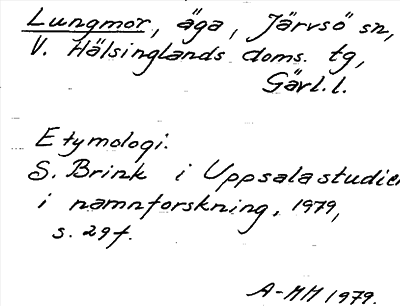 Lungmor, äga, Järvsö sn,
V. Hälsinglands doms. tg,
Gävl.l.
Etymologi.
S. Brink i Uppsalastudier
i namnforskning, 1979,
s. 29f.
A-MH 1979.